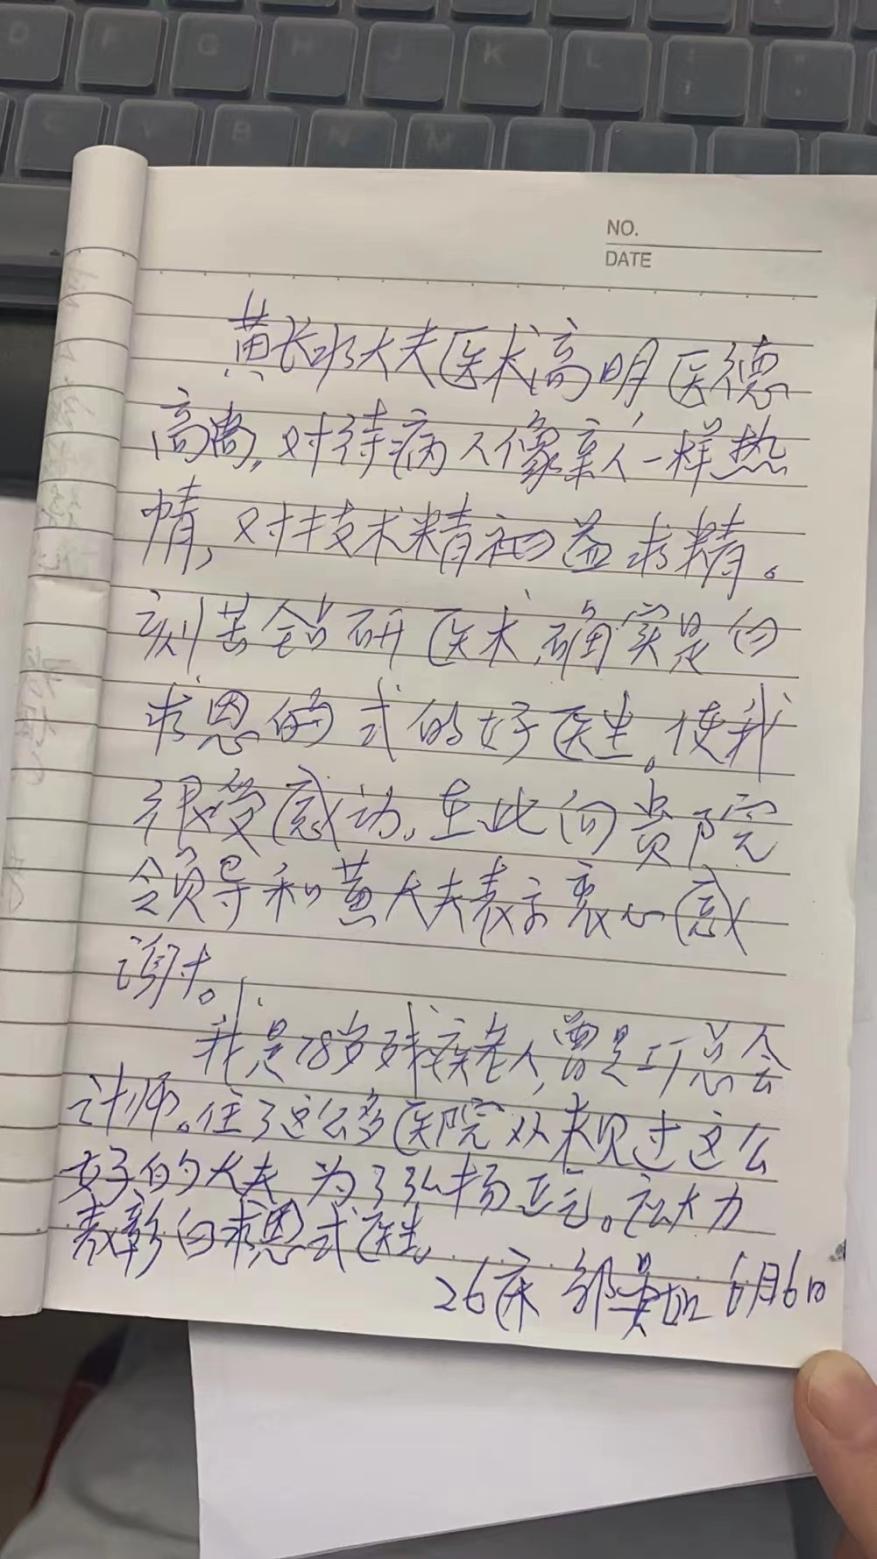 NO.
DATE
黄长水大夫医术高明医德
高尚,对待病人像亲人一样热
情,对技术精益求精。
刻苦钻研医术,确实是白
求恩的式的好医生。使我
很受感动。在此向贵院
领导和黄大夫表示衷心感
谢。
我是78岁残疾老人,曾是工厂总会
计师。住了这么多医院从未见过这么
好的大夫 为了弘扬正气。应大力
表彰白求恩式医生。
26床 邹 6月6日